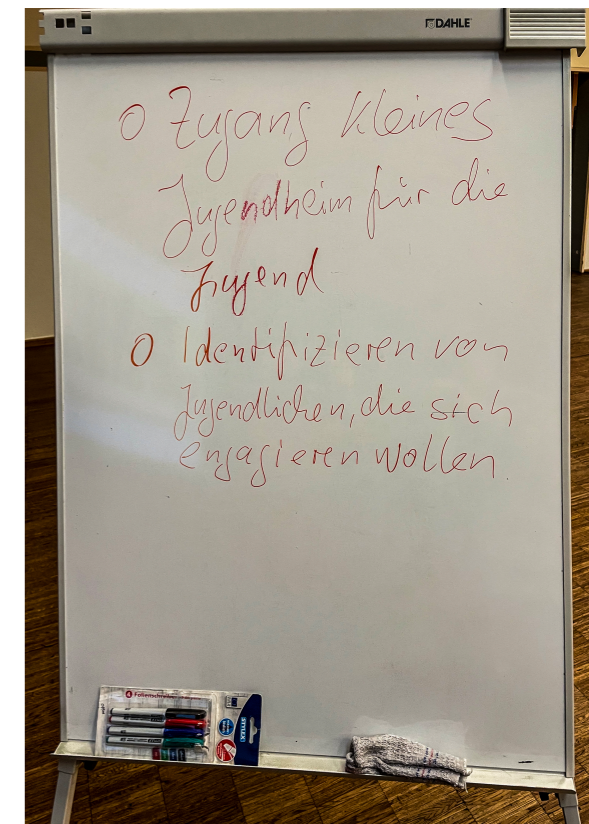 DAHLE
O Zugang kleines
Jugendheim für die
Jugend
O Identifizieren von
Jugendlichen, die sich
engagieren wollen.
4 Folienschreiber
STYLEX